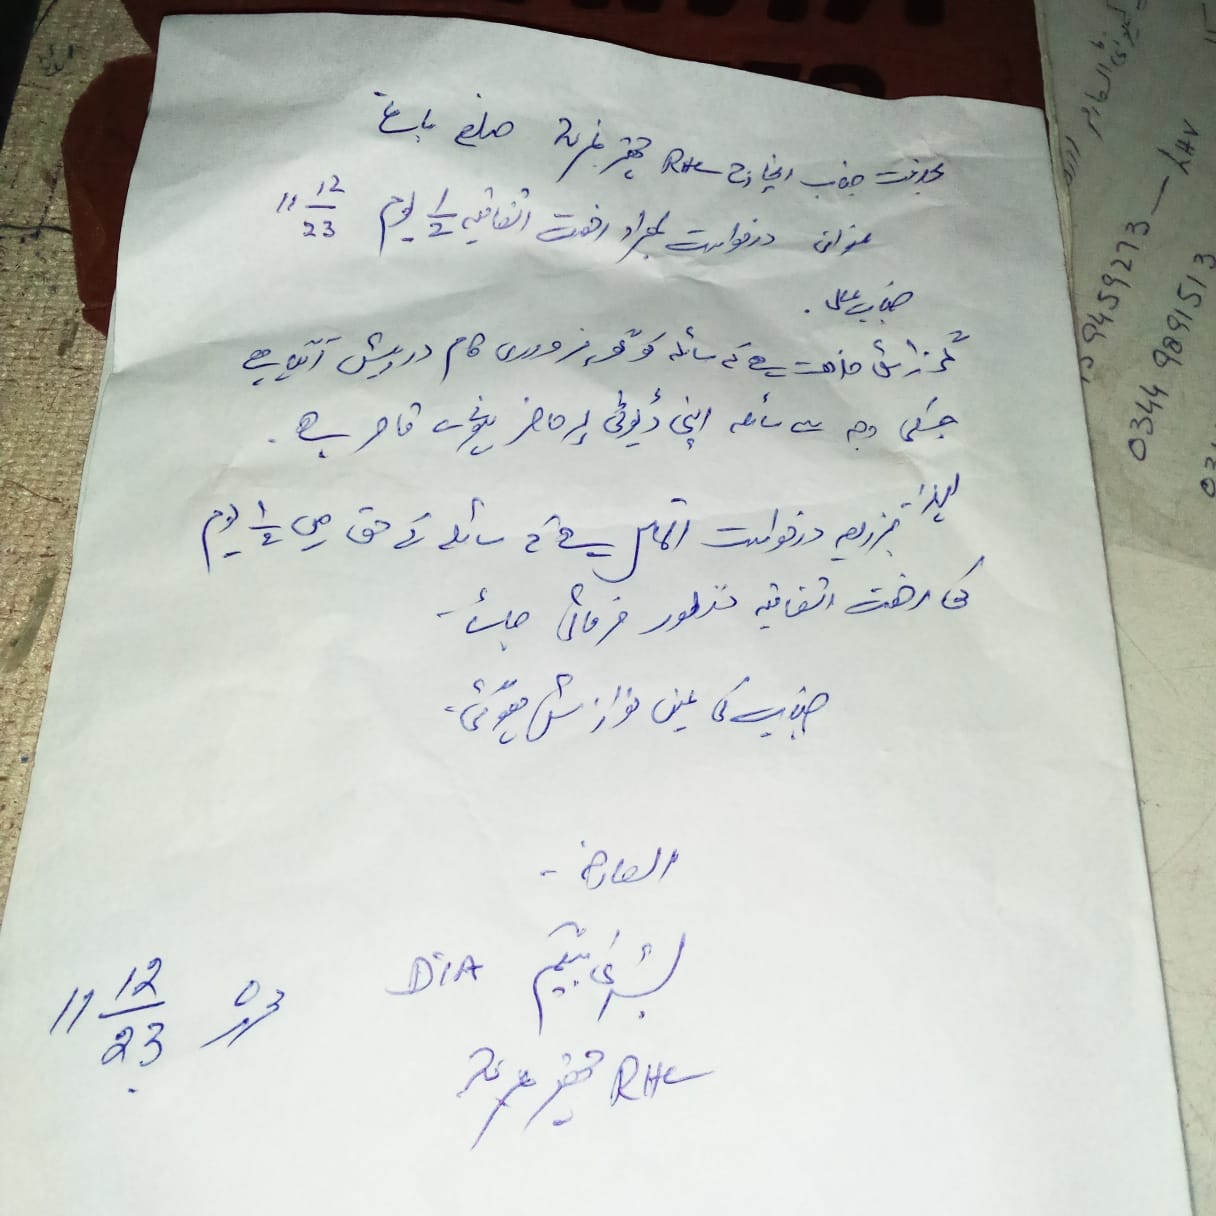 بخدمت جناب انچارج RHC چھتر نمبر 2 ضلع باغ
عنوان درخواست بمراد رخصت اتفاقیہ 1/2 یوم 11 12/23
جناب عالی.
گزارش خدمت ہے کہ سائلہ کو گھر ضروری کام درپیش آ گیا ہے
جسکی وجہ سے سائلہ اپنی ڈیوٹی پر حاضر ہونے سے قاصر ہے.
لہذا بذریعہ درخواست التماس ہے کہ سائلہ کے حق میں 1/2 یوم
کی رخصت اتفاقیہ منظور فرمائی جائے-
جناب کی عین نوازش ہوگی-
العارضہ-
بشریٰ بیگم DIA
RHC چھتر نمبر 2
محررہ 11 12/23
59459273 — LHV
0344 9891513